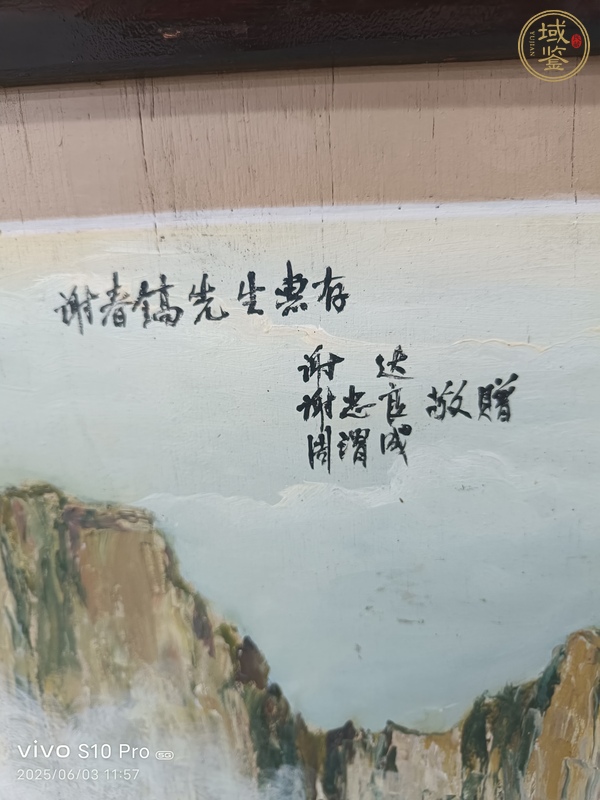 域鉴
YUJIAN
谢春镐先生惠存
谢 达
谢忠良 敬赠
周渭成
vivo S10 Pro 5G
2025/06/03 11:57